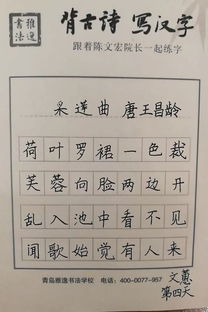 雅逸書法
背古诗 写汉字
跟着陈文宏院长一起练字
采莲曲 唐王昌龄
荷叶罗裙一色裁
芙蓉向脸两边开
乱入池中看不见
闻歌始觉有人来
青岛雅逸书法学校 电话：400-0077-957
文蕙
第四天